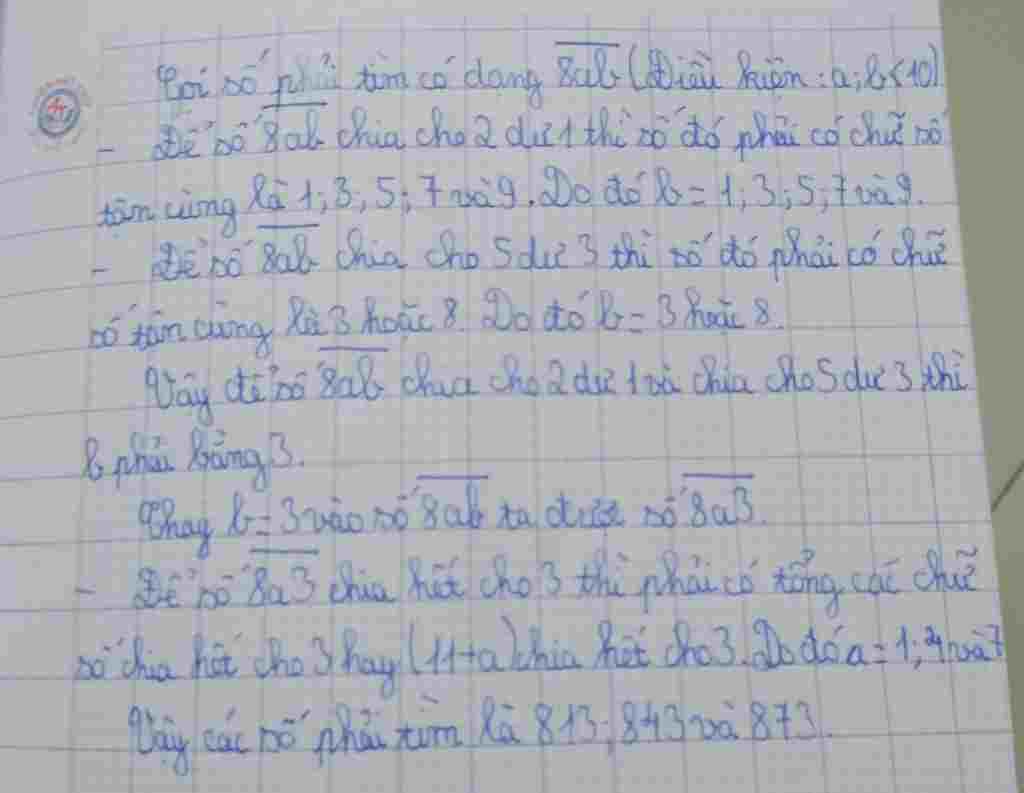 Gọi số phải tìm có dạng 8ab (Điều kiện : a; b < 10)
- Để số 8ab chia cho 2 dư 1 thì số đó phải có chữ số
tận cùng là 1; 3; 5; 7 và 9. Do đó b = 1; 3; 5; 7 và 9.
- Để số 8ab chia cho 5 dư 3 thì số đó phải có chữ
số tận cùng là 3 hoặc 8. Do đó b = 3 hoặc 8.
Vậy để số 8ab chia cho 2 dư 1 và chia cho 5 dư 3 thì
b phải bằng 3.
Thay b = 3 vào số 8ab ta được số 8a3.
- Để số 8a3 chia hết cho 3 thì phải có tổng các chữ
số chia hết cho 3 hay (11+a) chia hết cho 3. Do đó a = 1; 4 và 7
Vậy các số phải tìm là 813; 843 và 873.